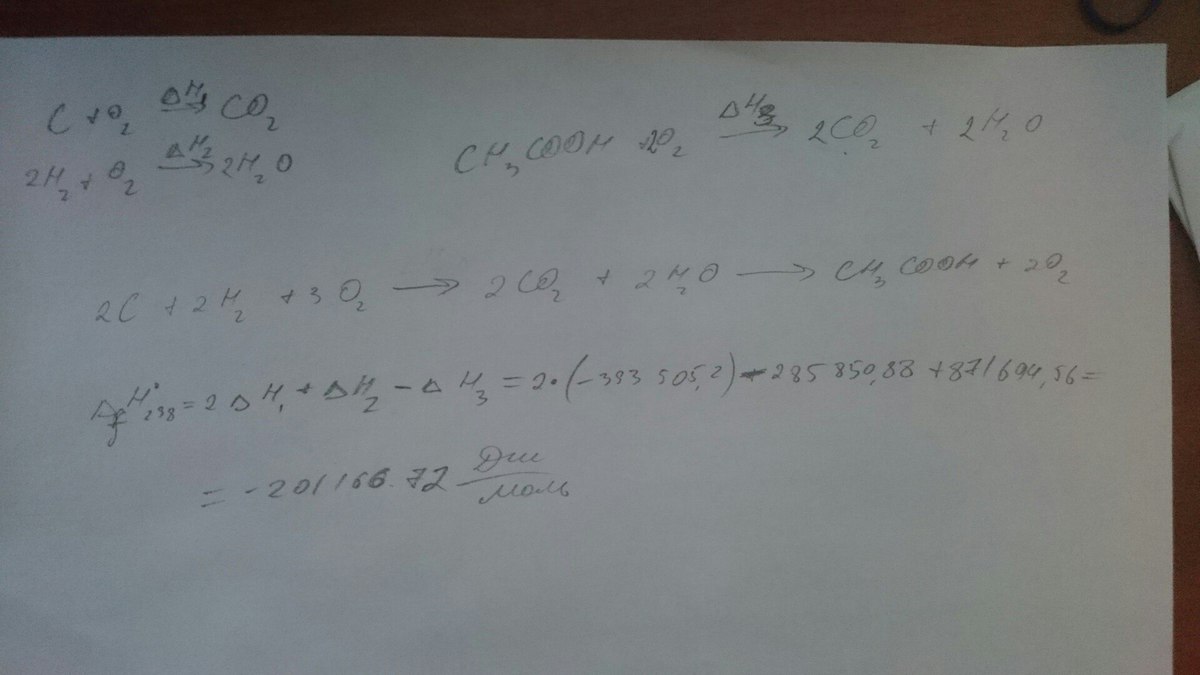 C + O₂ —ΔH₁→ CO₂
2H₂ + O₂ —ΔH₂→ 2H₂O
CH₃COOH + 2O₂ —ΔH₃→ 2CO₂ + 2H₂O
2C + 2H₂ + 3O₂ → 2CO₂ + 2H₂O → CH₃COOH + 2O₂
Δ_f H°₂₉₈ = 2ΔH₁ + ΔH₂ − ΔH₃ = 2·(−393 505,2) − 285 850,88 + 871 694,56 =
= −201166.72 Дж/моль